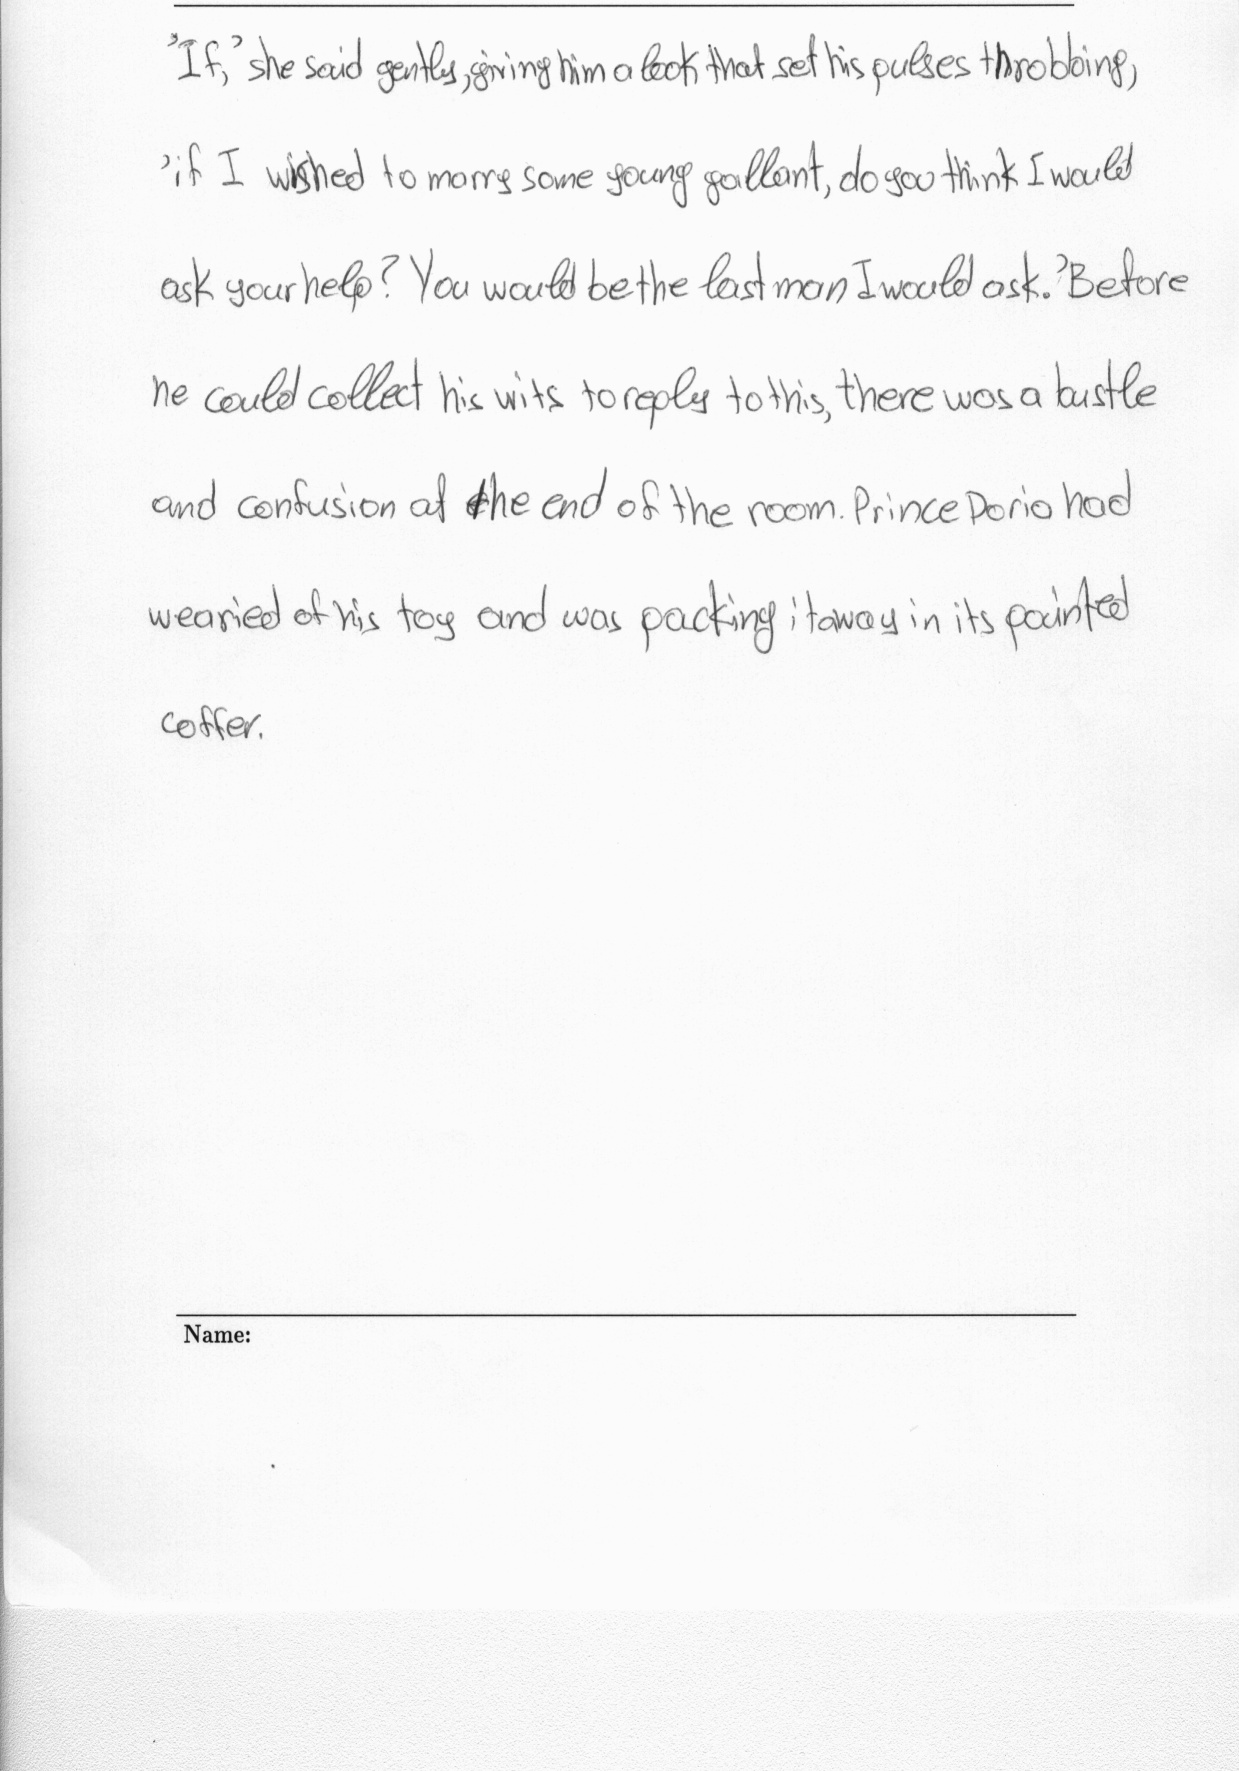 'If,' she said gently, giving him a look that set his pulses throbbing,
'if I wished to marry some young gallant, do you think I would
ask your help? You would be the last man I would ask.' Before
he could collect his wits to reply to this, there was a bustle
and confusion at the end of the room. Prince Dorio had
wearied of his toy and was packing it away in its painted
coffer.
Name: